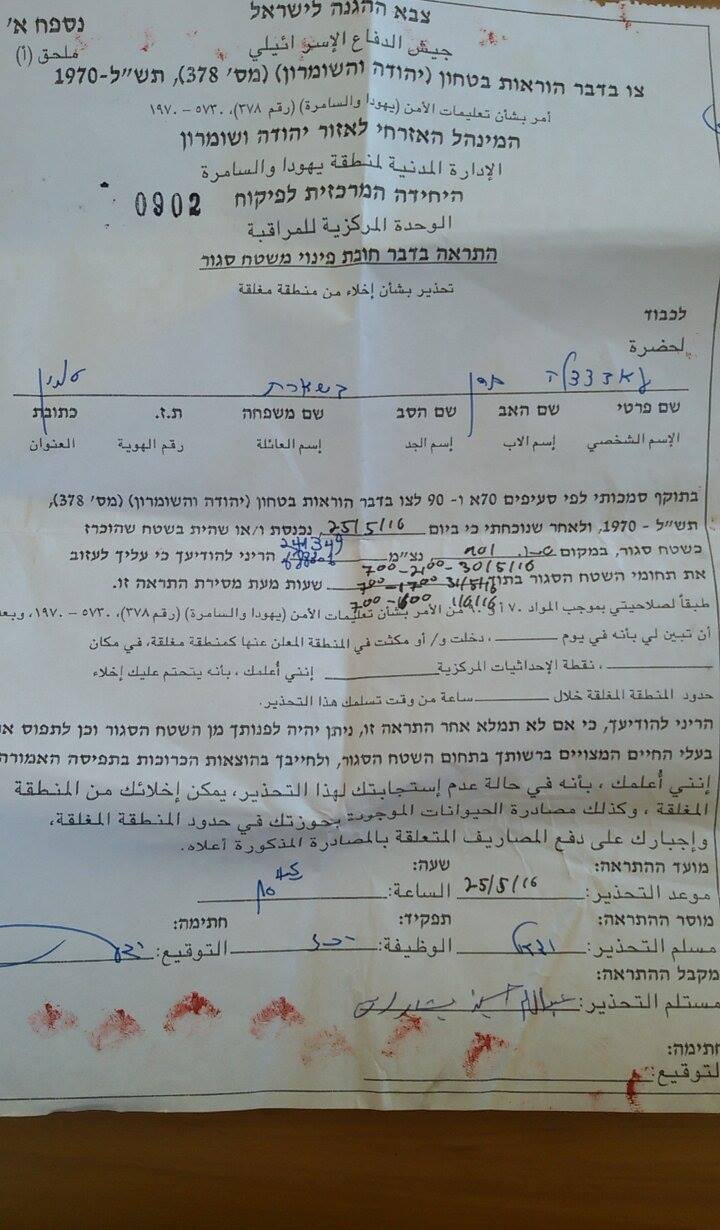 צבא ההגנה לישראל
נספח א'
جيش الدفاع الإسرائيلي
ملحق (أ)
צו בדבר הוראות בטחון (יהודה והשומרון) (מס' 378), תש"ל-1970
أمر بشأن تعليمات الأمن (يهودا والسامرة) (رقم ٣٧٨)، ٥٧٣٠ – ١٩٧٠
המינהל האזרחי לאזור יהודה ושומרון
الإدارة المدنية لمنطقة يهودا والسامرة
היחידה המרכזית לפיקוח
0902
الوحدة المركزية للمراقبة
התראה בדבר חובת פינוי משטח סגור
تحذير بشأن إخلاء من منطقة مغلقة
לכבוד
لحضرة
בשארת
שם פרטי שם האב שם הסב שם משפחה ת.ז. כתובת
الإسم الشخصي إسم الاب إسم الجد إسم العائلة رقم الهوية العنوان
בתוקף סמכותי לפי סעיפים 70א ו- 90 לצו בדבר הוראות בטחון (יהודה והשומרון) (מס' 378),
תש"ל - 1970, ולאחר שנוכחתי כי ביום 25/5/16 נכנסת ו/או שהית בשטח שהוכרז
כשטח סגור, במקום נצ"מ הריני להודיעך כי עליך לעזוב
700-2100-30/5/16
את תחומי השטח הסגור בתוך 700-1700 31/5/16 שעות מעת מסירת התראה זו.
700-1600 1/6/16
طبقاً لصلاحيتي بموجب المواد ٧٠ من الأمر بشأن تعليمات الأمن (يهودا والسامرة) (رقم ٣٧٨)، ٥٧٣٠ – ١٩٧٠، وبعد
أن تبين لي بأنه في يوم ، دخلت و/ أو مكثت في المنطقة المعلن عنها كمنطقة مغلقة، في مكان
، نقطة الإحداثيات المركزية إنني أعلمك ، بأنه يتحتم عليك إخلاء
حدود المنطقة المغلقة خلال ساعة من وقت تسلمك هذا التحذير.
הריני להודיעך, כי אם לא תמלא אחר התראה זו, ניתן יהיה לפנותך מן השטח הסגור וכן לתפוס את
בעלי החיים המצויים ברשותך בתחום השטח הסגור, ולחייבך בהוצאות הכרוכות בתפיסה האמורה
إنني أعلمك ، بأنه في حالة عدم إستجابتك لهذا التحذير، يمكن إخلائك من المنطقة
المغلقة ، وكذلك مصادرة الحيوانات الموجودة بحوزتك في حدود المنطقة المغلقة،
وإجبارك على دفع المصاريف المتعلقة بالمصادرة المذكورة أعلاه.
מועד ההתראה: שעה:
موعد التحذير: 25/5/16 الساعة: 10 45
מוסר ההתראה: תפקיד: חתימה:
مسلم التحذير: الوظيفة: التوقيع:
מקבל ההתראה:
مستلم التحذير:
חתימה:
التوقيع: